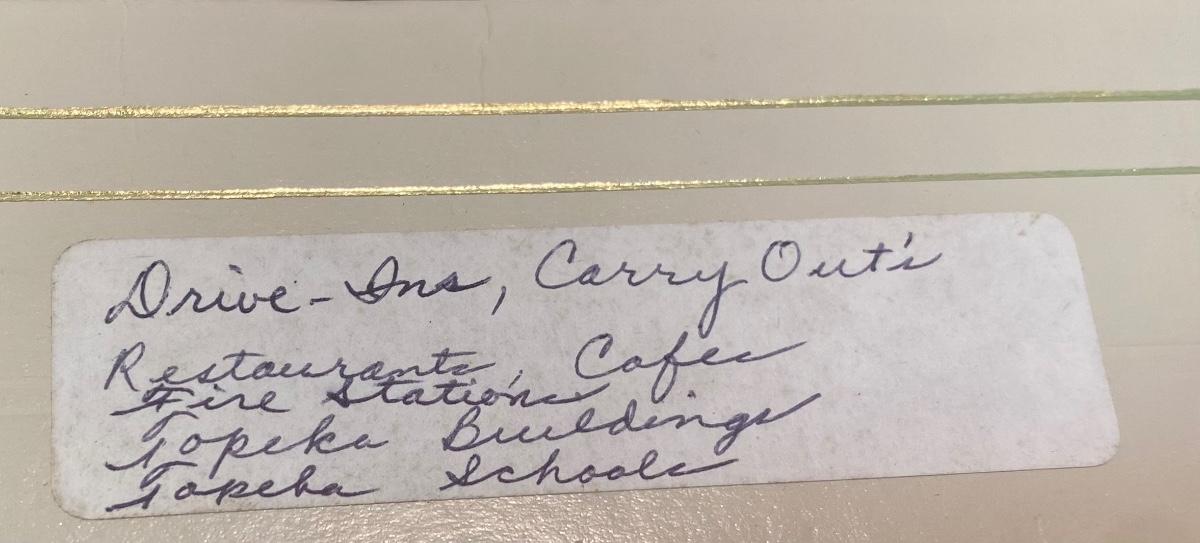 Drive-Ins, Carry Out's
Restaurants, Cafes
Fire Stations
Topeka Buildings
Topeka Schools